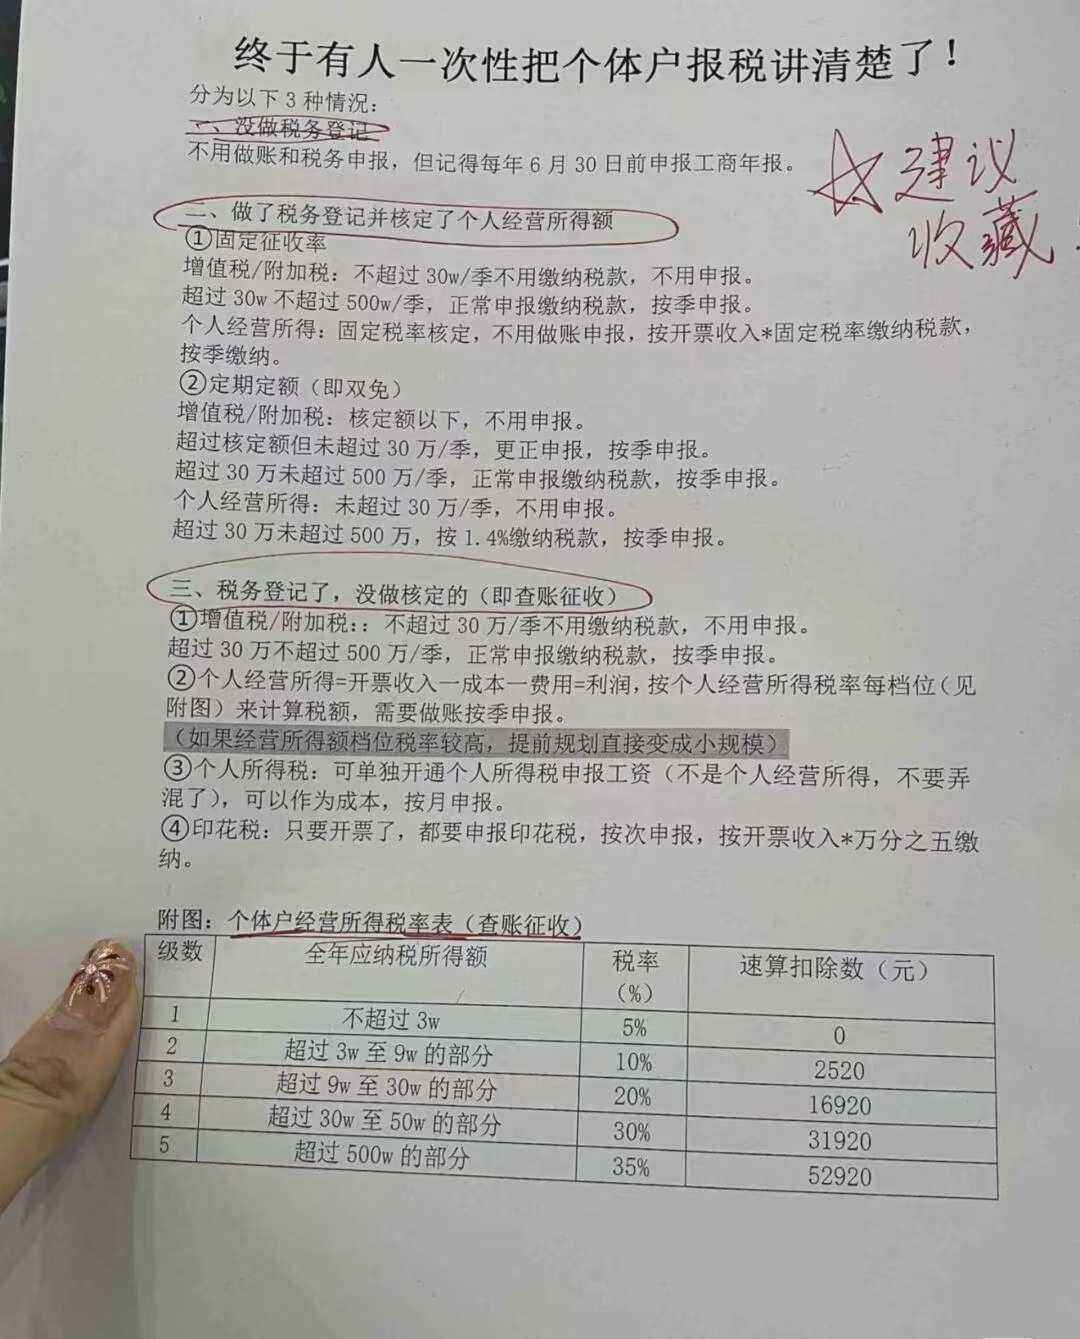 终于有人一次性把个体户报税讲清楚了！
分为以下3种情况：
一、没做税务登记
不用做账和税务申报，但记得每年6月30日前申报工商年报。
建议
收藏
二、做了税务登记并核定了个人经营所得额
①固定征收率
增值税/附加税：不超过30w/季不用缴纳税款，不用申报。
超过30w不超过500w/季，正常申报缴纳税款，按季申报。
个人经营所得：固定税率核定，不用做账申报，按开票收入*固定税率缴纳税款，
按季缴纳。
②定期定额（即双免）
增值税/附加税：核定额以下，不用申报。
超过核定额但未超过30万/季，更正申报，按季申报。
超过30万未超过500万/季，正常申报缴纳税款，按季申报。
个人经营所得：未超过30万/季，不用申报。
超过30万未超过500万，按1.4%缴纳税款，按季申报。
三、税务登记了，没做核定的（即查账征收）
①增值税/附加税：：不超过30万/季不用缴纳税款，不用申报。
超过30万不超过500万/季，正常申报缴纳税款，按季申报。
②个人经营所得=开票收入一成本一费用=利润，按个人经营所得税率每档位（见
附图）来计算税额，需要做账按季申报。
（如果经营所得额档位税率较高，提前规划直接变成小规模）
③个人所得税：可单独开通个人所得税申报工资（不是个人经营所得，不要弄
混了），可以作为成本，按月申报。
④印花税：只要开票了，都要申报印花税，按次申报，按开票收入*万分之五缴
纳。
附图：个体户经营所得税率表（查账征收）
级数 全年应纳税所得额 税率（%） 速算扣除数（元）
1 不超过3w 5% 0
2 超过3w至9w的部分 10% 2520
3 超过9w至30w的部分 20% 16920
4 超过30w至50w的部分 30% 31920
5 超过500w的部分 35% 52920